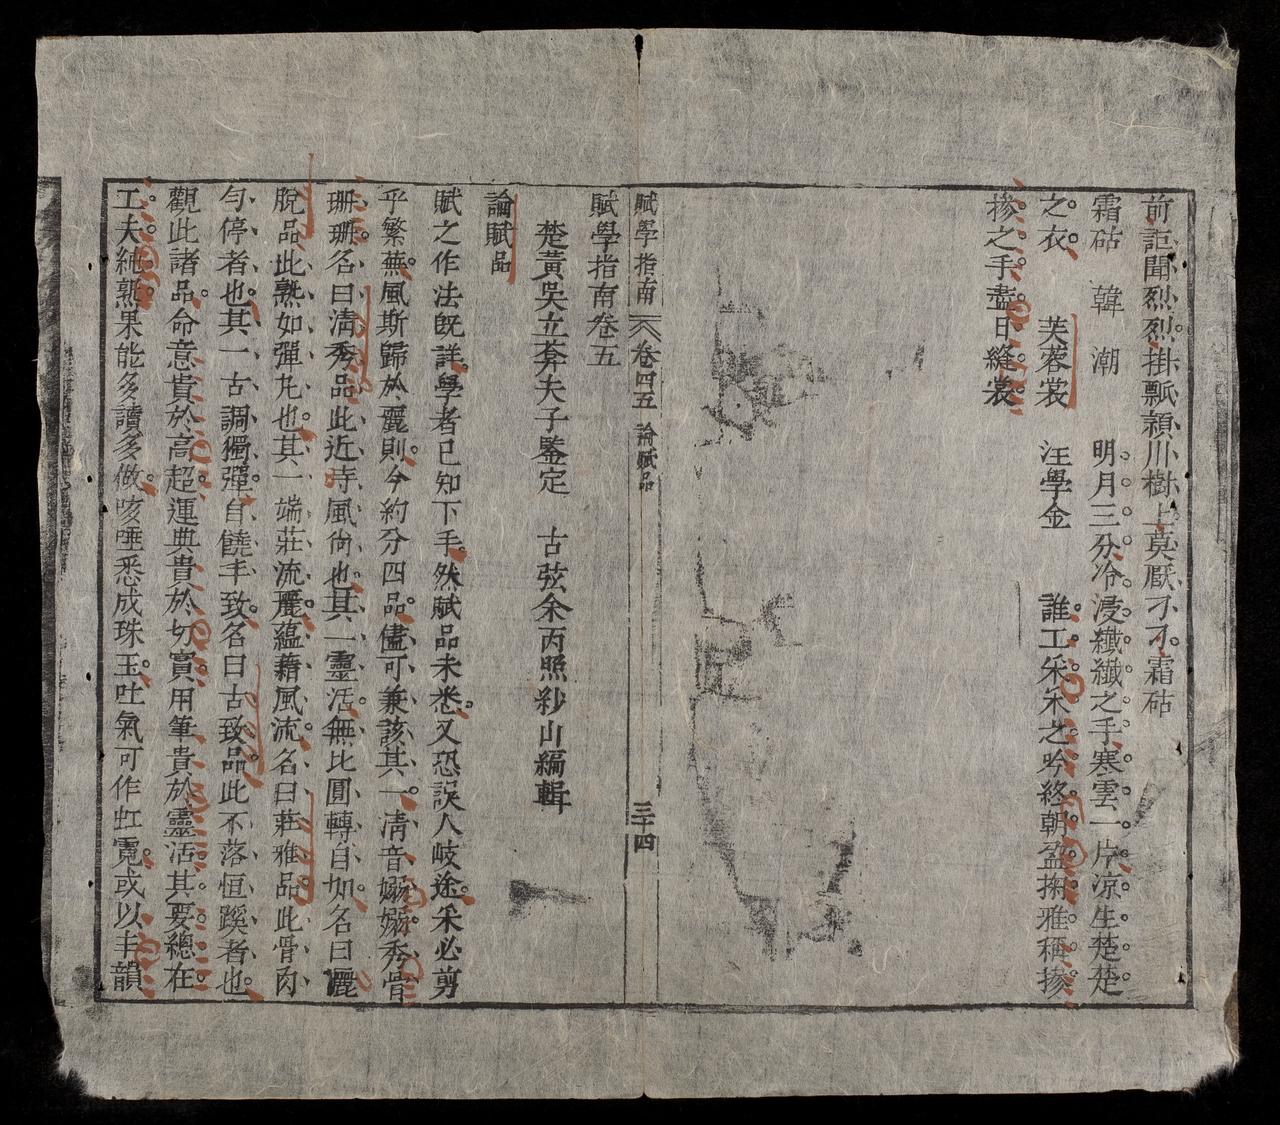 前詎聞烈烈掛瓢潁川樹上莫厭刁刁霜砧
霜砧 韓潮 明月三分冷浸纖纖之手寒雲一片凉生楚楚
之衣 芙蓉裳 汪學金 誰工采采之吟終朝盈掬雅稱摻
摻之手盡日縫裳
賦學指南 卷四五 論賦品 三十四
賦學指南卷五
楚黃吳立莾夫子鑒定 古弦余丙照彩山編輯
論賦品
賦之作法旣詳學者已知下手然賦品未悉又恐誤人岐途采必剪
乎繁蕪風斯歸於麗則今約分四品儘可兼該其一清音嫋嫋秀骨
珊珊名曰淸秀品此近寺風尙也其一靈活無比圓轉自如名曰灑
脫品此熟如彈丸也其一端莊流麗蘊藉風流名曰莊雅品此骨肉
勻停者也其一古調獨彈自饒丰致名曰古致品此不落恒蹊者也
觀此諸品命意貴於高超運典貴於切實用筆貴於靈活其要總在
工夫純熟果能多讀多做咳唾悉成珠玉吐氣可作虹霓或以丰韻